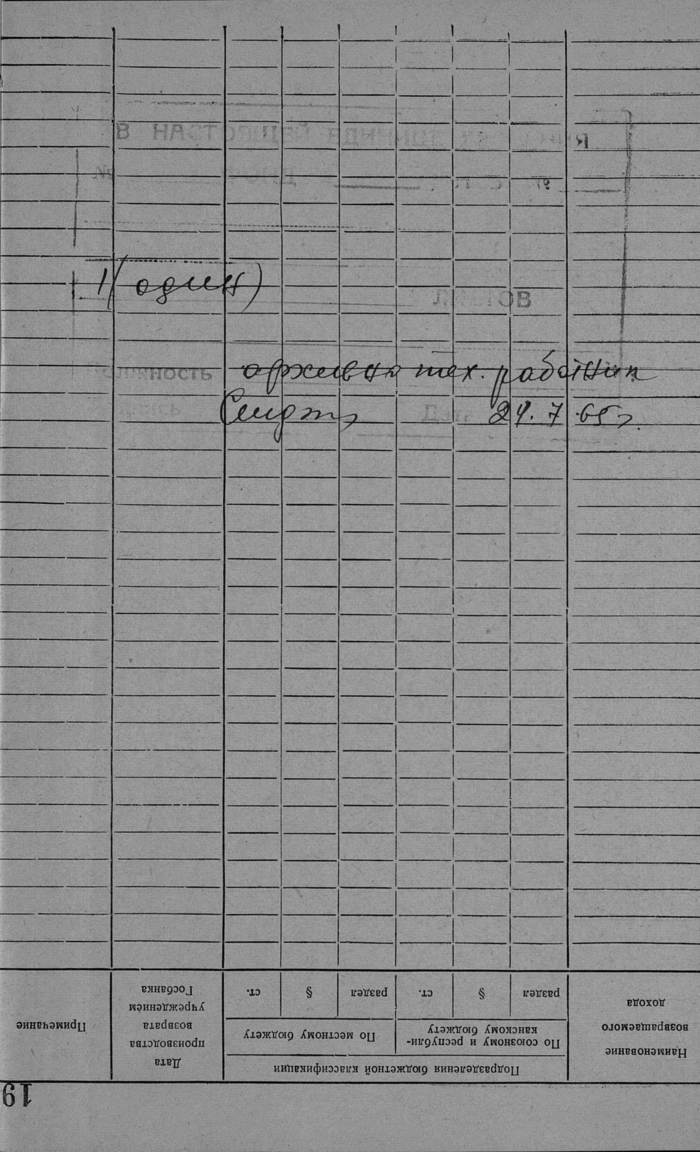 В НАСТОЯЩЕЙ
№
1 (один)
ЛИСТОВ
Должность архивно тех. работник
Дата 24.7.65 г.
Наименование возвращаемого дохода
Подразделения бюджетной классификации
По союзному и республиканскому бюджету
раздел § ст.
По местному бюджету
раздел § ст.
Дата производства возврата учреждением Госбанка
Примечание
19